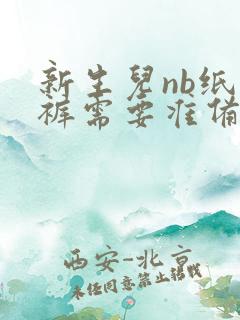 新生儿nb纸
裤需要准备
西安-北京
未经同意禁止转载